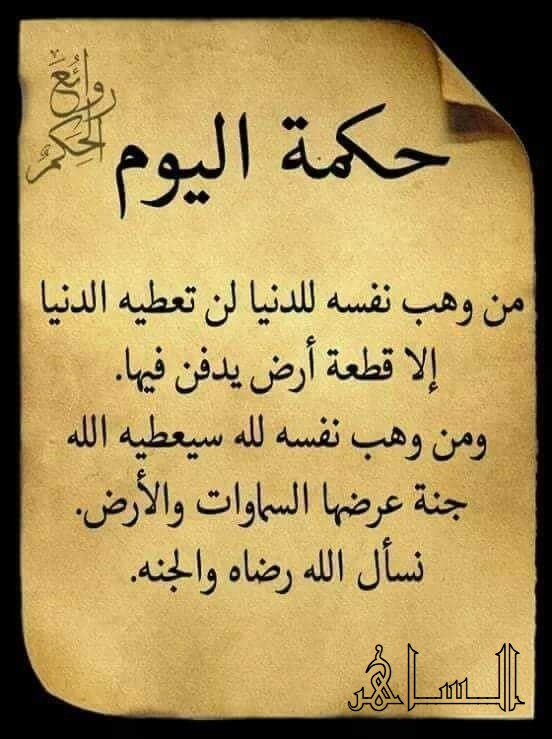 روائع
الحِكَمْ
حكمة اليوم
من وهب نفسه للدنيا لن تعطيه الدنيا
إلا قطعة أرض يدفن فيها.
ومن وهب نفسه لله سيعطيه الله
جنة عرضها السماوات والأرض.
نسأل الله رضاه والجنه.
الساهر